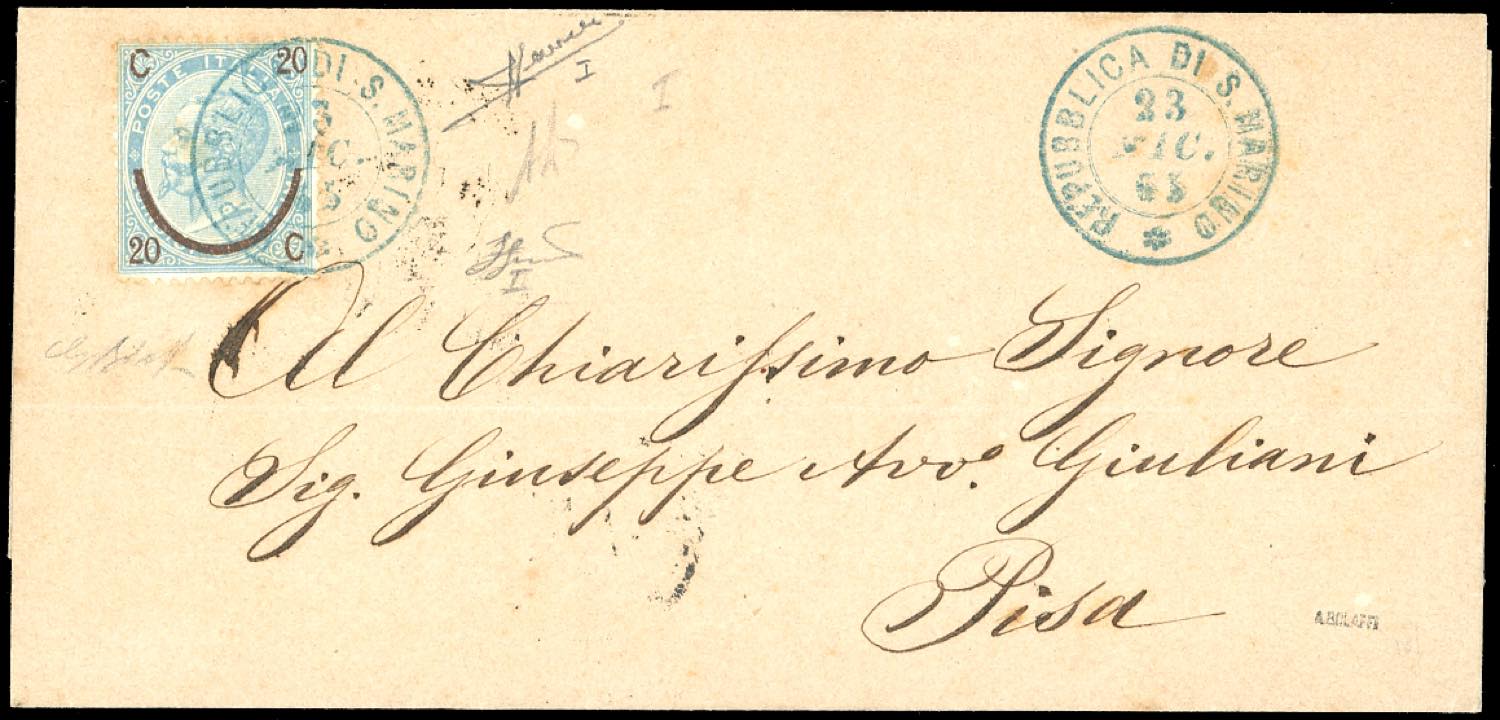 C 20
POSTE ITALIANE
20 C
REPUBBLICA DI S. MARINO
REPUBBLICA DI S. MARINO
23
DIC.
65
I
I
I
Al Chiarissimo Signore
Sig. Giuseppe Avv.o Giuliani
Pisa
A. BOLAFFI